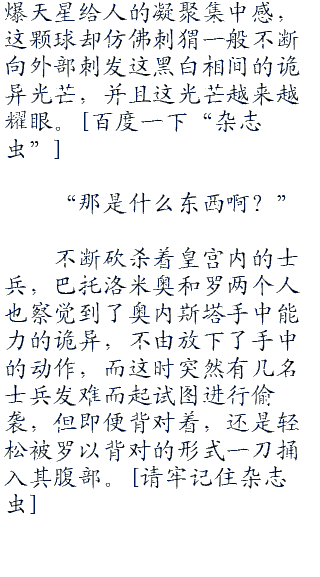 爆天星给人的凝聚集中感，
这颗球却仿佛刺猬一般不断
向外部刺发这黑白相间的诡
异光芒，并且这光芒越来越
耀眼。[百度一下“杂志
虫”]
“那是什么东西啊？”
不断砍杀着皇宫内的士
兵，巴托洛米奥和罗两个人
也察觉到了奥内斯塔手中能
力的诡异，不由放下了手中
的动作，而这时突然有几名
士兵发难而起试图进行偷
袭，但即便背对着，还是轻
松被罗以背对的形式一刀捅
入其腹部。[请牢记住杂志
虫]